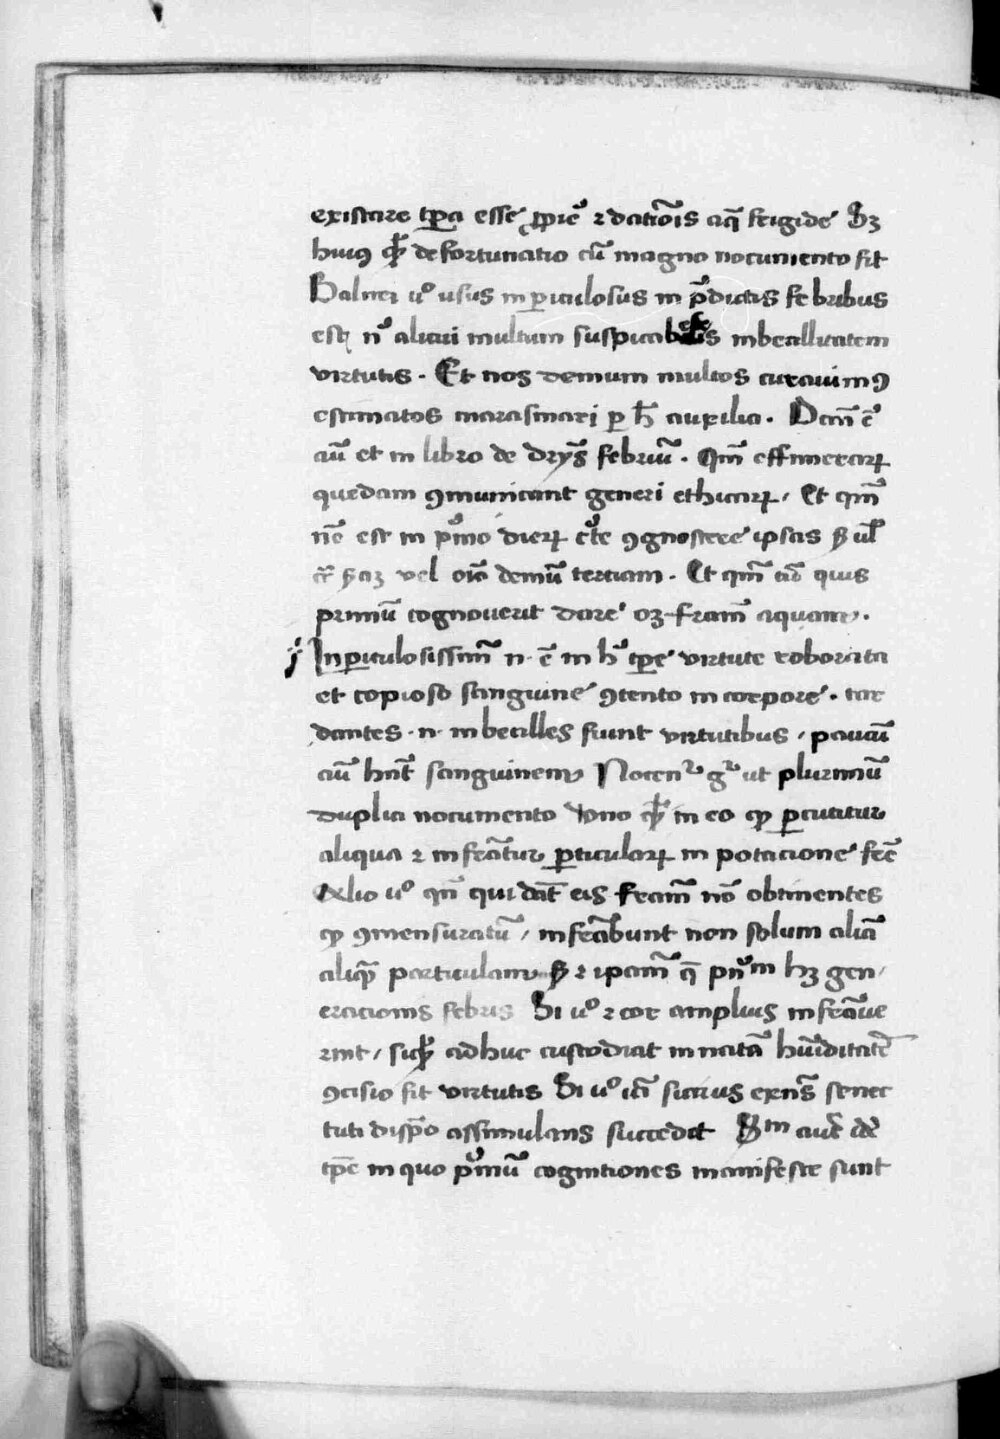 existare tp̄a esse ꝓpiē ⁊ datiōis aq̄ frigide Sꝫ
huiꝰ qͥ defortunatio cū magno nocumento fit
Balnei uͦ usus inpiculosus in p̄dictis febribus
est nͦ alicui multum suspicabilis inbecillitatem
virtutis . Et nos demum multos curauimꝰ
estimatos marasmari p h̄ auxilia . Dcm̄ ē
aū et in libro de febriū . Qm̄ effimerarꝝ
quedam ꝯmunicant generi ethicarꝝ , Et qm̄
nē est in pͥmo dierꝝ cͭe ꝯgnoscere ipsas ul̄
vel oīo demū tertiam . Et qm̄ quis
primū cognouerit dare oꝫ fram̄ aquam .
Inpiculosissim̄ n . ē in hͦ tp̄e virtute roborata
et copioso sanguine ꝯtento in corpore . tar
dantes . n . inbecilles fiunt virtutibus , paucū
aū hn̄t sanguinem Nocenͬ gͬ ut plurimū
duplici nocumento Vno qͥ in eo ꝙ ꝑcutitur
aliqua ⁊ infrātur ꝑticularꝝ in potacione frē
Alio uͦ qn̄ qui dāt eis fream̄ nō obtinentes
ꝙ ꝯmensuratū , infrābunt non solum aliā
aliqͣ particulam ⁊ ipam̄ q̄ pnͫ hꝫ gen,
eracionis febris Si uͦ ⁊ cor amplius infrāue
rint , sicqͥ adhuc custodiat innatā hūiditatē
ꝯcisio fit virtutis Si uͦ iā siccius exn̄s senec
tuti disp̄o assimulans succedit Sm auē
tp̄e in quo pͥmū cognitiones manifeste sunt